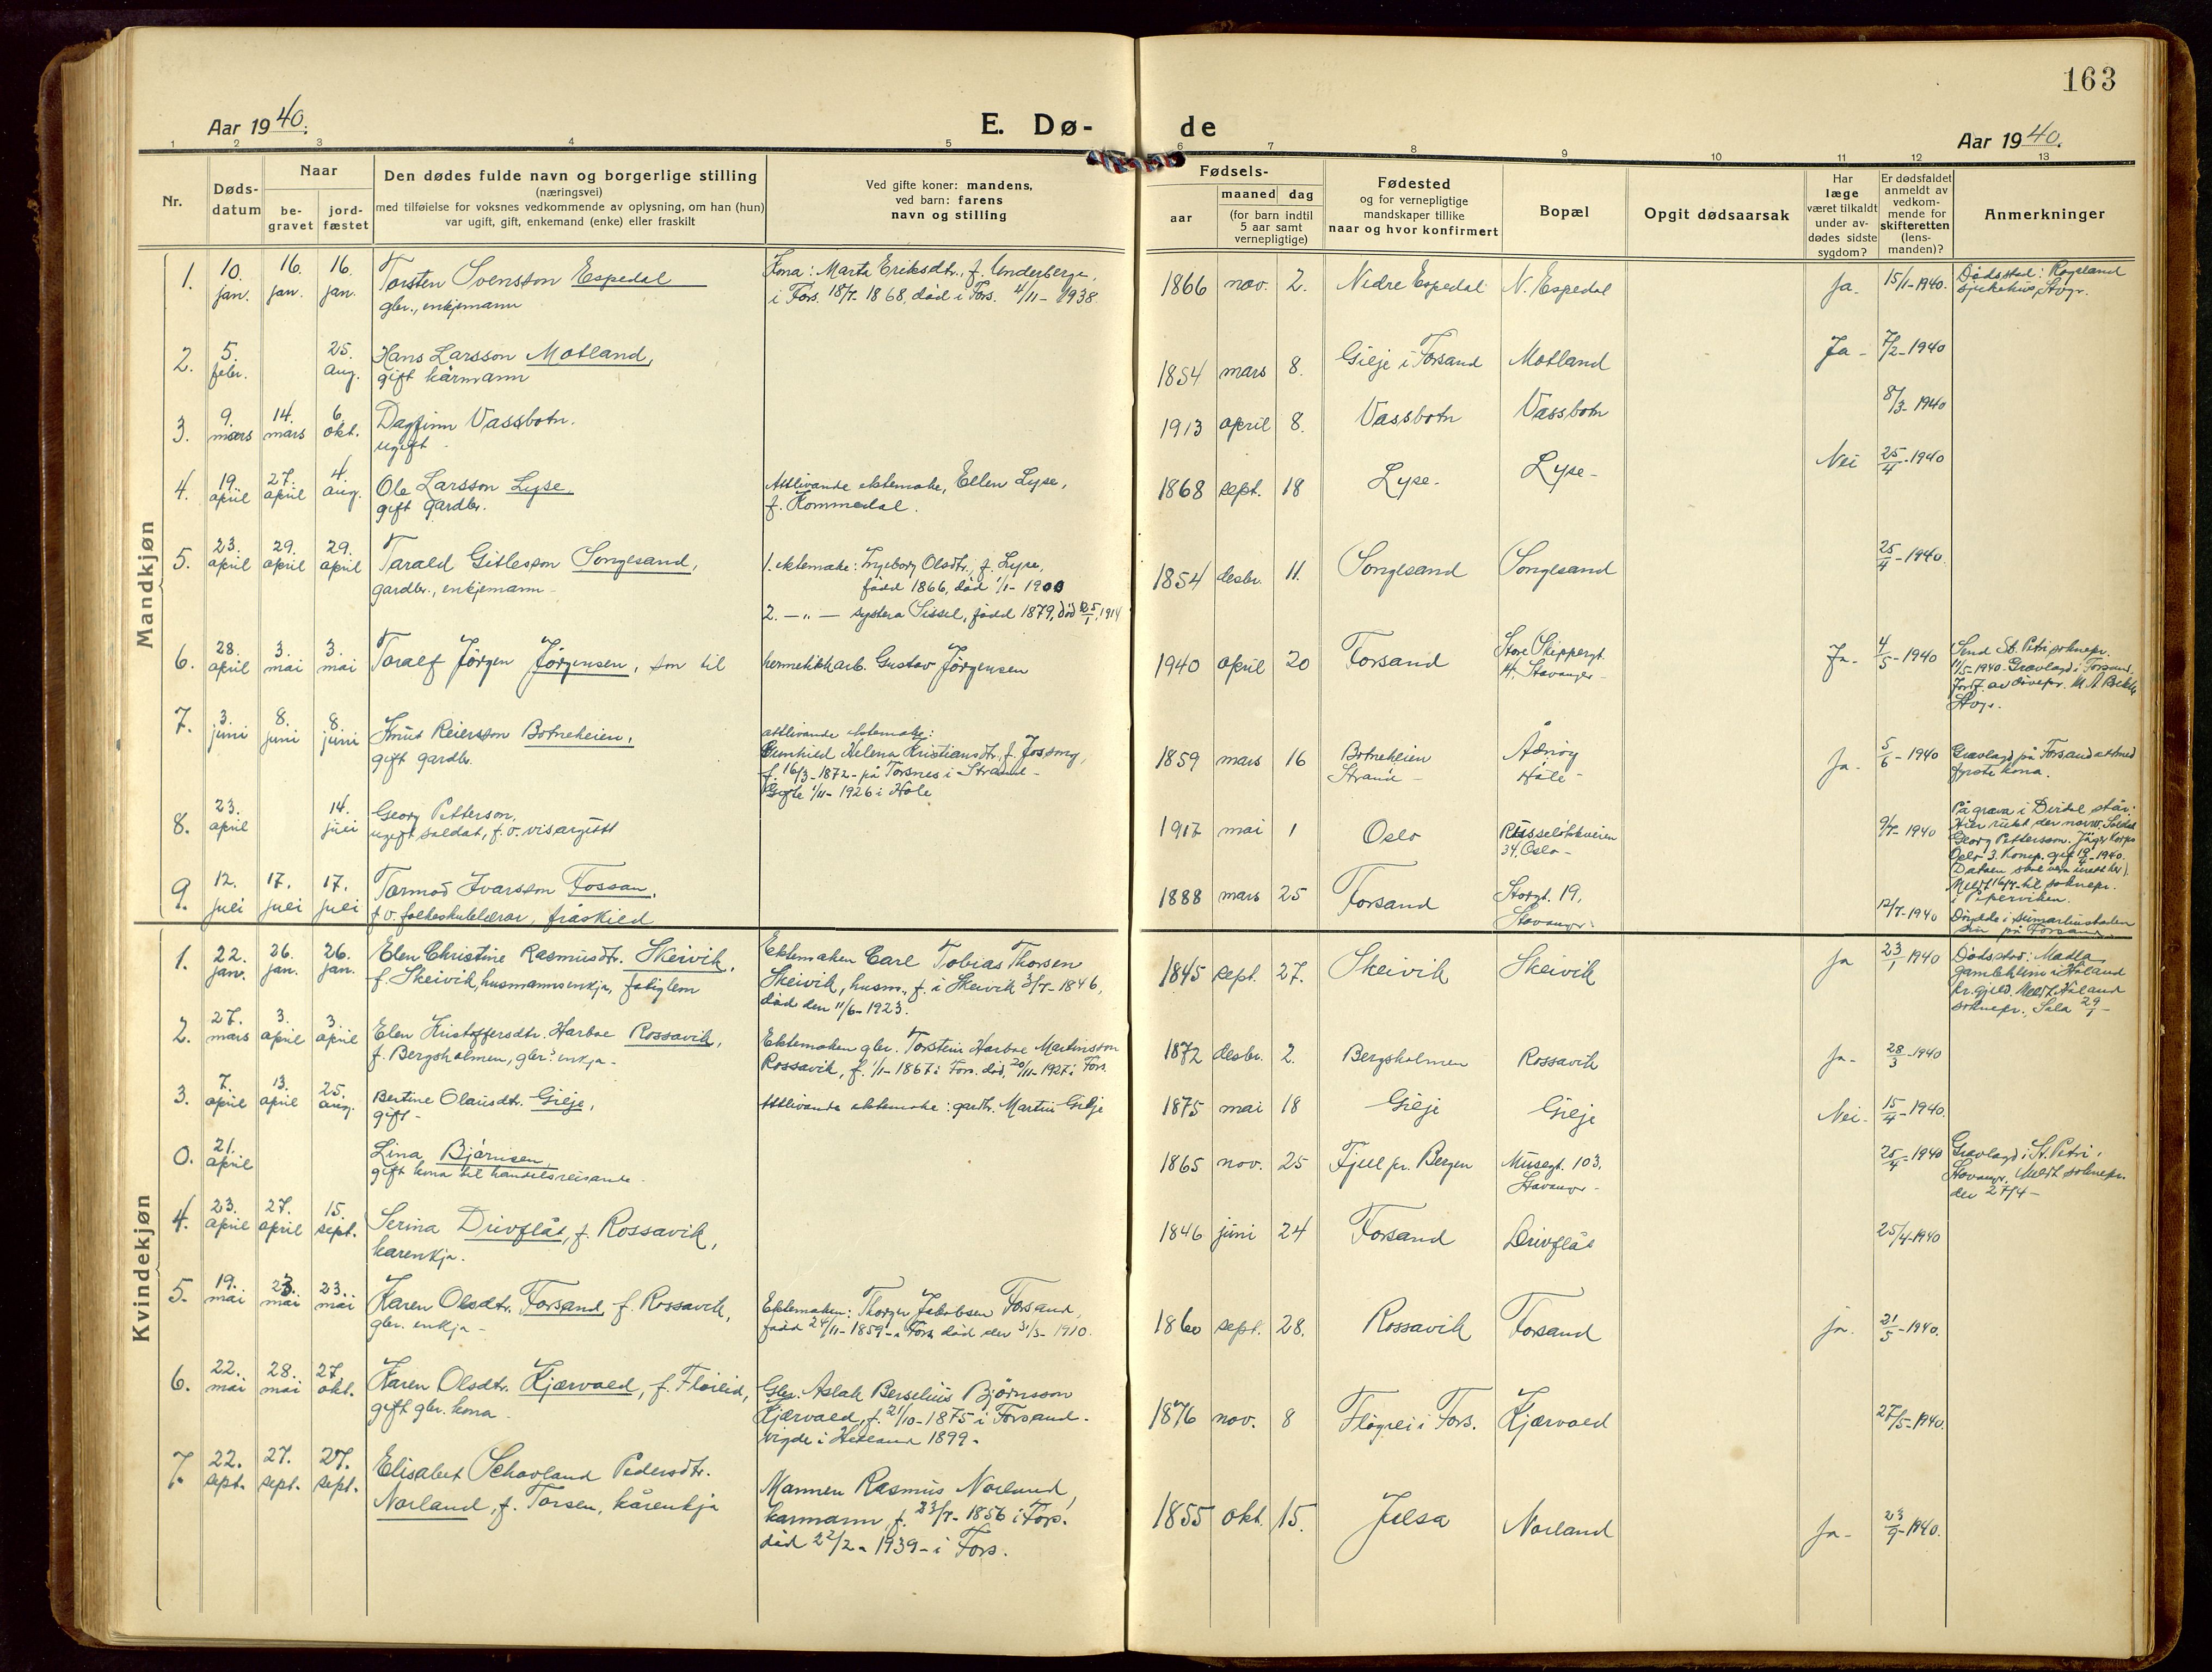 163
Aar 1940.
E. Dø-
de
Aar 1940.
1 2 3 4 5 6 7 8 9 10 11 12 13
Nr.
Døds-
datum
Naar
be-
gravet
jord-
fæstet
Den dødes fulde navn og borgerlige stilling
(næringsvei)
med tilføielse for voksnes vedkommende av oplysning, om han (hun)
var ugift, gift, enkemand (enke) eller fraskilt
Ved gifte koner: mandens,
ved barn: farens
navn og stilling
Fødsels-
aar
maaned dag
(for barn indtil
5 aar samt
vernepligtige)
Fødested
og for vernepligtige
mandskaper tillike
naar og hvor konfirmert
Bopæl
Opgit dødsaarsak
Har
læge
været tilkaldt
under av-
dødes sidste
sygdom?
Er dødsfaldet
anmeldt av
vedkom-
mende for
skifteretten
(lens-
manden)?
Anmerkninger
Mandkjøn
1. 10. jan. 16. jan. 16. jan.
Torsten Svensson Espedal
gbr., enkjemann
Kona: Marta Eriksdtr., f. Underberge,
i Fors. 18/7. 1868, död i Fors. 4/11-1938.
1866 nov. 2. Nedre Espedal N. Espedal Ja- 15/1-1940.
Dödsstad: Rogaland
sjukehus, Stvgr.
2. 5. febr. 25. aug.
Hans Larsson Motland,
gift kårmann
1854 mars 8. Gilje i Forsand Motland Ja- 7/2-1940
3. 9. mars 14. mars 6. okt.
Dagfinn Vassbotn.
ugift
1913 april 8. Vassbotn Vassbotn 8/3-1940
4. 19. april 27. april 4. aug.
Ole Larsson Lyse
gift gardbr.
Attlivande ektemake, Ellen Lyse,
f. Kommedal.
1868 sept. 18 Lyse- Lyse- Nei 25/4-1940
5. 23. april 29. april 29. april
Tarald Gitlesson Songesand,
gardbr., enkjemann-
1. ektemake: Ingeborg Olsdtr., f. Lyse,
född 1866, död 1/1-1900
2. -"- systera Sissel, född 1879, död 25/1, 1914
1854 desbr. 11. Songesand Songesand 25/4-1940.
6. 28. april 3. mai 3. mai
Taralf Jörgen Jörgensen, son til
hermetikkarb. Gustav Jörgensen
1940 april 20 Forsand
Store Skippergt.
14, Stavanger-
Ja- 4/5-1940
Send St. Petri soknepr.
11/5-1940. Gravlagd i Forsand.
Jordf. av dövepr.
Stvgr.
7. 3. juni 8. juni 8. juni
Knut Reiersson Botneheien,
gift gardbr.
attlivande ektemake:
Gunhild Helena Kristiansdtr. f. Jossang,
f. 16/3-1872- på Torsnes i Strand-
Gifte 1/11-1926 i Höle
1859 mars 16
Botneheien
Strand-
Adnöy
Höle-
Ja- 5/6-1940
Gravlagd på Forsand attmed
fyrste kona.
8. 23. april 14. juli
Georg Petterson,
ugift soldat, f. v. visergutt
1917 mai 1 Oslo
Russelökkveien
34, Oslo-
9/7-1940
På grava i Dirdal står:
Hier ruht der norw. Soldat
Georg Pettersson. Jäger Korps
Oslo 3. Komp. gef. 19/4-1940.
(Datoen skal vera rett her).
Meldt 16/7 til soknepr.
i Piperviken.
9. 12. juli 17. juli 17. juli
Tormod Ivarsson Fossan,
f. v. folkeskulelærar, fråskild
1888 mars 25 Forsand
Storgt. 19,
Stavanger.
12/7-1940
Döydde i sumarhustaden
sin på Forsand.
Kvindekjøn
1. 22. jan. 26. jan. 26. jan.
Elen Christine Rasmusdtr. Skeivik,
f. Skeivik, husmannsenkja, fatiglem
Ektemaken Carl Tobias Thorsen
Skeivik, husm., f. i Skeivik 3/7-1846,
död den 11/6-1923.
1845 sept. 27. Skeivik Skeivik Ja 23/1 1940
Dödsstad: Madla
gamleheim i Håland
pr.gjeld. Meldt Håland
soknepr., Sola 29/1-
2. 27. mars 3. april 3. april
Elen Kristoffersdtr. Harboe Rossavik,
f. Bergsholmen, gbr. enkja-
Ektemaken gbr. Torstein Harboe Martinsson
Rossavik, f. 1/1-1867 i Fors. död, 20/11-1927 i Fors.
1872 desbr. 2. Bergsholmen Rossavik Ja- 28/3-1940
3. 7. april 13. april 25. aug.
Bertine Olausdtr. Gilje,
gift-
Attlivande ektemake: gardbr. Martin Gilje
1875 mai 18 Gilje Gilje Nei- 15/4-1940.
0. 21. april
Lina Björnsen,
gift kona til handelsreisande-
1865 nov. 25 Fjell pr. Bergen
Musegt. 103,
Stavanger-
25/4-1940
Gravlagd i St. Petri,
Stavanger. Meldt soknepr.
den 27/4-
4. 23. april 27. april 15. sept.
Serina Drivflåt, f. Rossavik,
kårenkja.
1846 juni 24 Forsand Drivflåt 25/4-1940
5. 19. mai 23. mai 23. mai
Karen Olsdtr. Forsand f. Rossavik,
gbr. enkja-
Ektemaken: Thorger Jakobsen Forsand,
född 24/11-1859- i Fors. död den 31/3-1910.
1860 sept. 28. Rossavik Forsand ja. 21/5-1940.
6. 22. mai 28. mai 27. okt.
Karen Olsdtr. Kjærvold, f. Flörlid,
gift gbr. kona.
Gbr. Aslak Berselius Björnsson
Kjærvold, f. 21/10-1875 i Forsand-
vigde i Hetland 1899-
1876 nov. 8 i Fors. Kjærvold 27/5-1940.
7. 22. sept. 27. sept. 27. sept.
Elisabet Schovland Pedersdtr.
Norland, f. Torsen, kårenkja
Mannen Rasmus Norland,
karmann f. 23/7-1856 i Fors.
död 22/2-1939- i Fors.
1855 okt. 15. Jelsa Norland Ja- 23/9-1940.